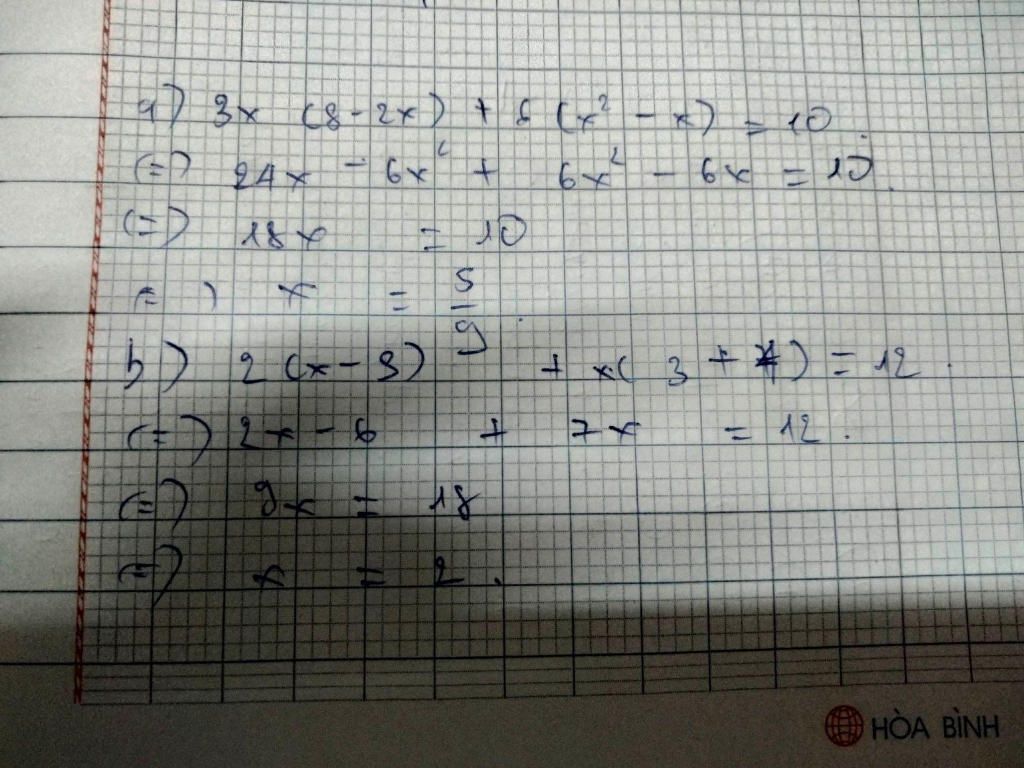 a) 3x (8 - 2x) + 6 (x² - x) = 10.
(=) 24x - 6x² + 6x² - 6x = 10.
(=) 18x = 10
(=) x = 5/9.
b) 2 (x - 3) + x( 3 + 4) = 12.
(=) 2x - 6 + 7x = 12.
(=) 9x = 18
(=) x = 2.
HÒA BÌNH